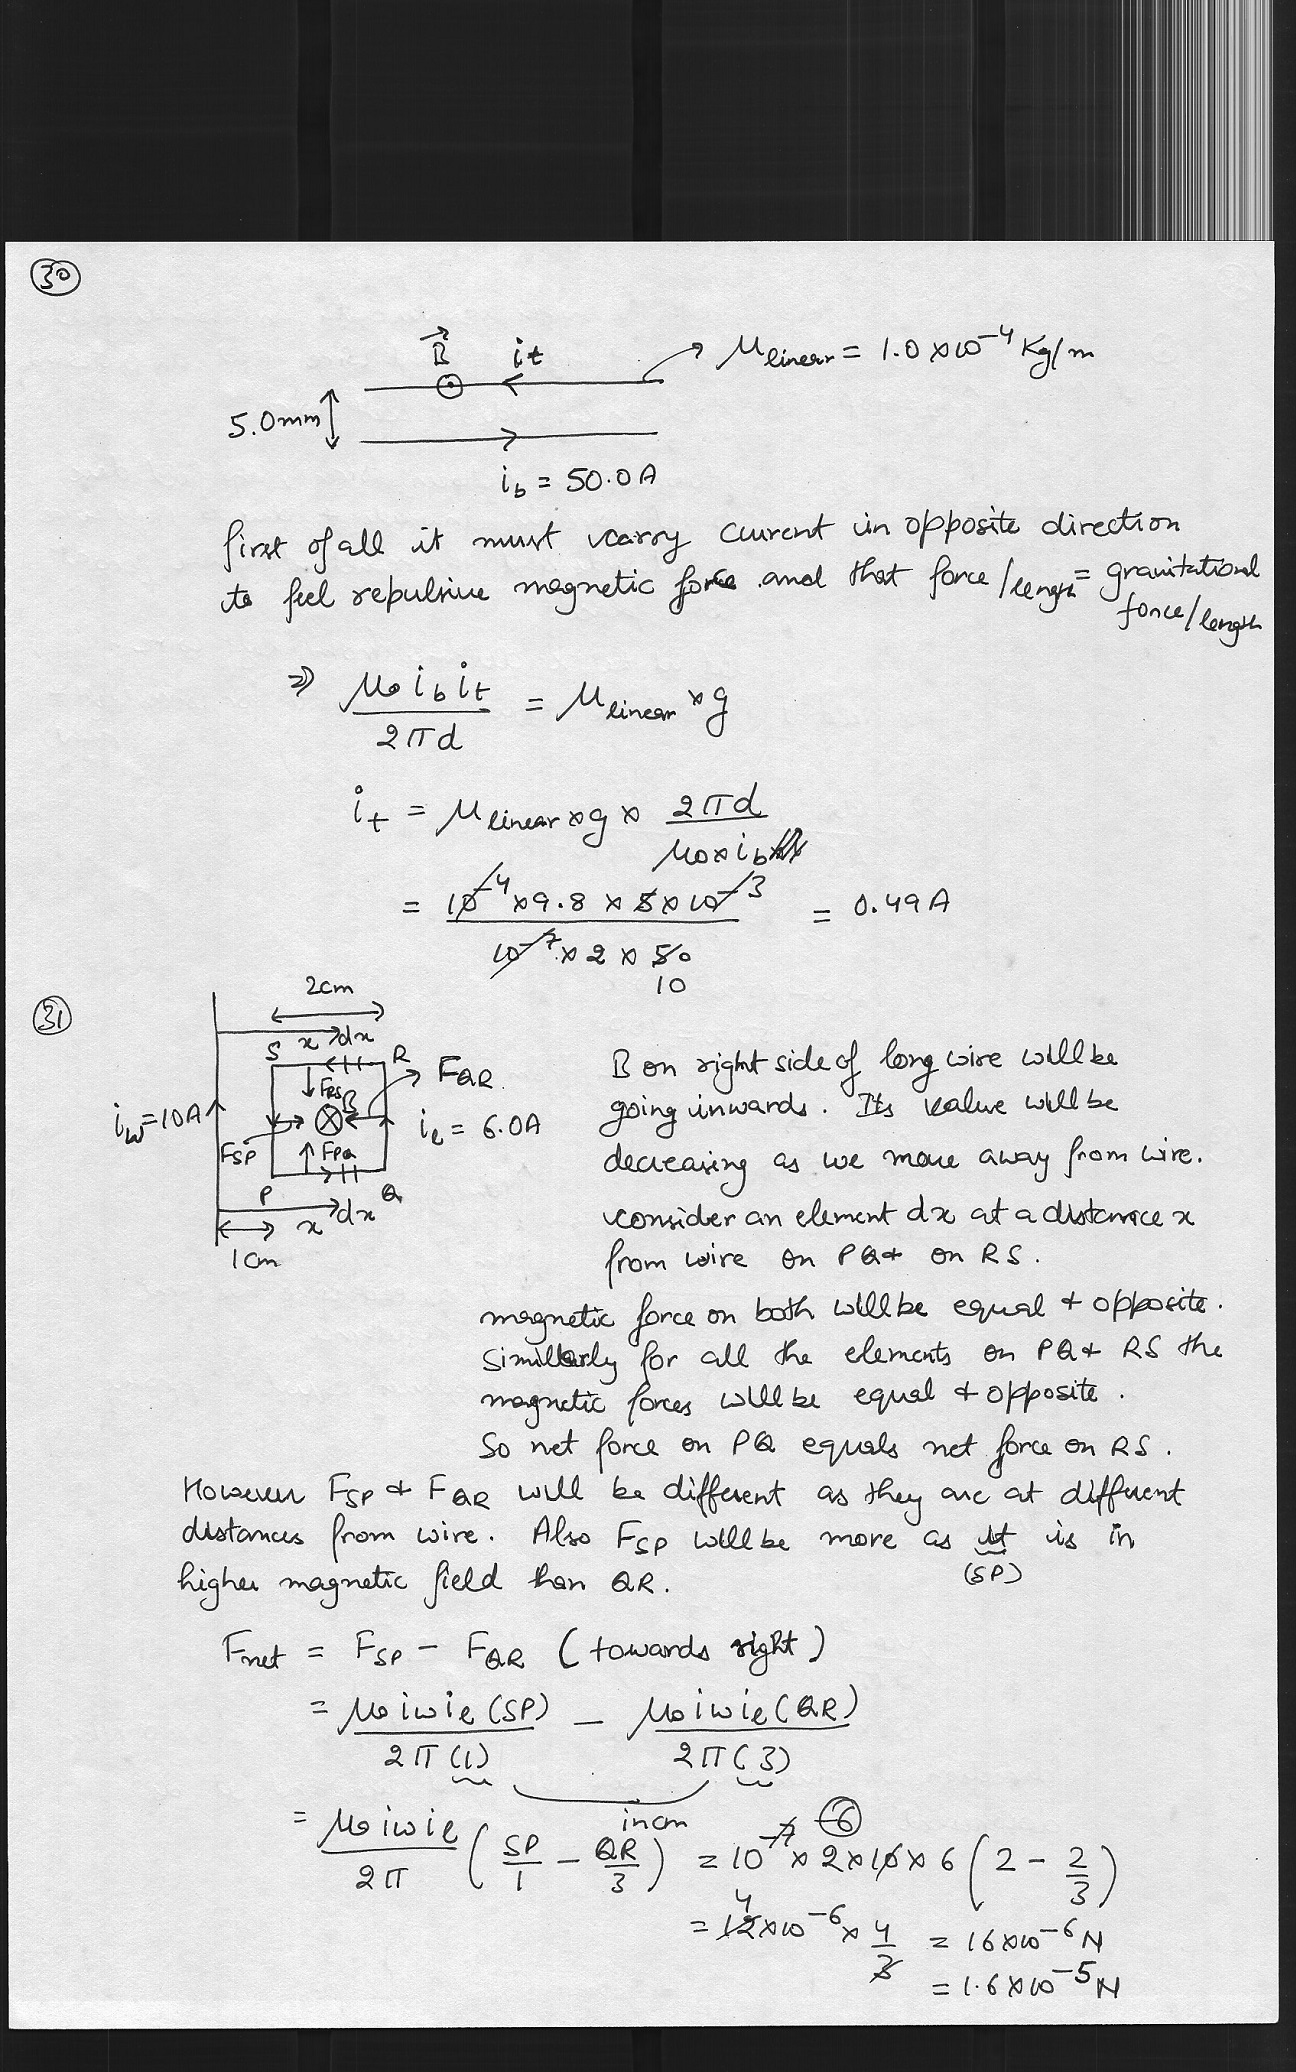 30
B⃗ it μ linear = 1.0 × 10⁻⁴ Kg/m
5.0mm
ib = 50.0A
first of all it must carry current in opposite direction
to feel repulsive magnetic force and that force/length = gravitational force/length
⇒ μ0 ib it / 2πd = μ linear × g
it = μ linear × g × 2πd / μ0 × ib
= 10⁻⁴ × 9.8 × 5 × 10⁻³ / 10⁻⁷ × 2 × 50 = 0.49A
10
31
2cm
x dx
S R
FRS B FQR
iw = 10A il = 6.0A
FSP FPQ
P Q
x dx
1cm
B on right side of long wire will be
going inwards. Its value will be
decreasing as we move away from wire.
consider an element dx at a distance x
from wire on PQ & on RS.
magnetic force on both will be equal & opposite.
Similarly for all the elements on PQ & RS the
magnetic forces will be equal & opposite.
So net force on PQ equals net force on RS.
However FSP & FQR will be different as they are at different
distances from wire. Also FSP will be more as it is in
(SP)
higher magnetic field than QR.
Fnet = FSP - FQR (towards right)
= μ0 iw il (SP) / 2π (1) - μ0 iw il (QR) / 2π (3)
in cm
= μ0 iw il / 2π (SP/1 - QR/3) = 10⁻⁷ ⁻⁶ × 2 × 10 × 6 (2 - 2/3)
= 12 4 × 10⁻⁶ × 4/3 = 16 × 10⁻⁶ N
= 1.6 × 10⁻⁵ N